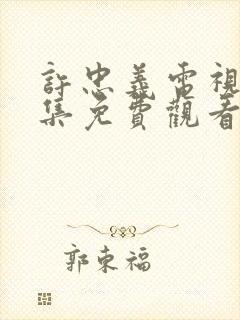 許忠義電視
集免費觀看
郭東福